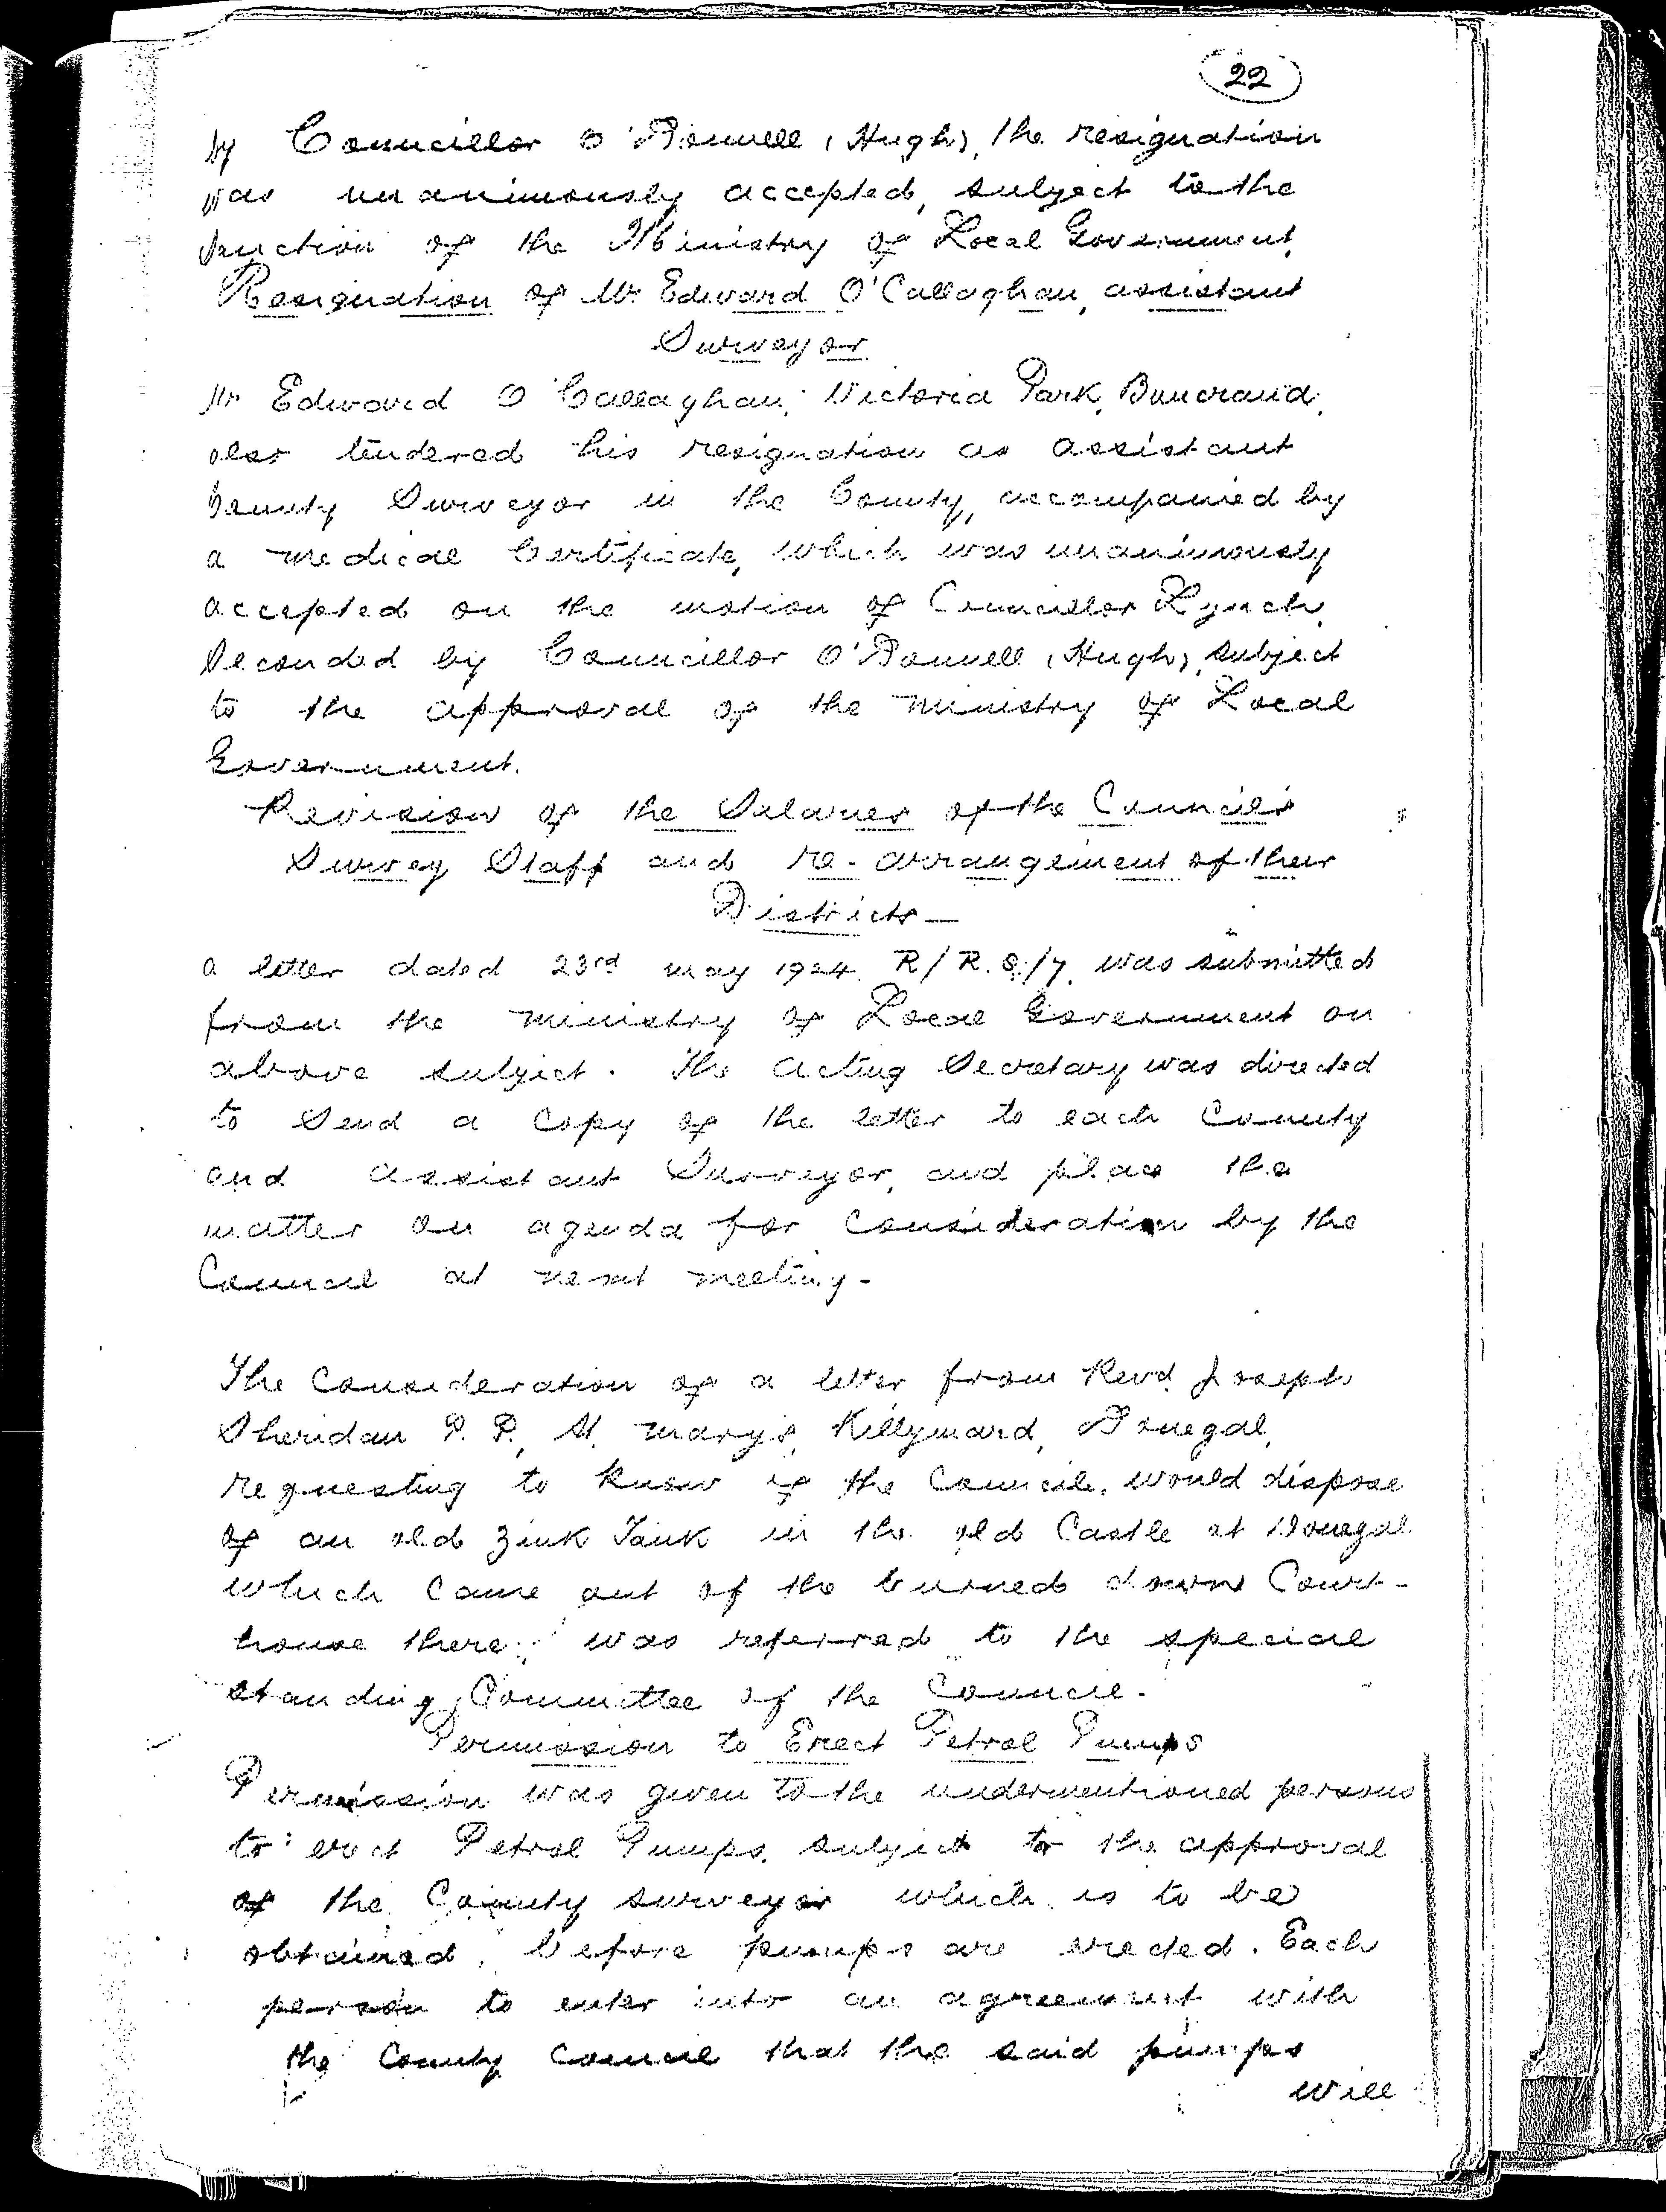 22
by Councillor O'Donnell (Hugh), the resignation
was unanimously accepted, subject to the
sanction of the Ministry of Local Government.
Resignation of Mr Edward O'Callaghan, assistant
Surveyor
Mr Edward O'Callaghan, Victoria Park, Buncrana,
also tendered his resignation as assistant
County Surveyor in the County, accompanied by
a medical Certificate, which was unanimously
accepted on the motion of Councillor Lynch,
Seconded by Councillor O'Donnell (Hugh), subject
to the approval of the Ministry of Local
Government.
Revision of the Salaries of the Council's
Survey Staff and re-arrangement of their
Districts—
a letter dated 23rd May 1924. R/R.S./7. was submitted
from the Ministry of Local Government on
above subject. The Acting Secretary was directed
to Send a Copy of the letter to each County
and assistant Surveyor, and place the
matter on agenda for Consideration by the
Council at next meeting-
The Consideration of a letter from Revd. Joseph
Sheridan P.P., St. Mary's, Killymard, Donegal,
requesting to know if the Council, would dispose
of an old Zink Tank in the old Castle at Donegal
which Came out of the burned down Court-
house there, was referred to the special
standing Committee of the Council.
Permission to Erect Petrol Pumps
Permission was given to the undermentioned persons
to erect Petrol Pumps, subject to the approval
of the County surveyor which is to be
obtained, before pumps are erected. Each
person to enter into an agreement with
the County Council that the said pumps
will